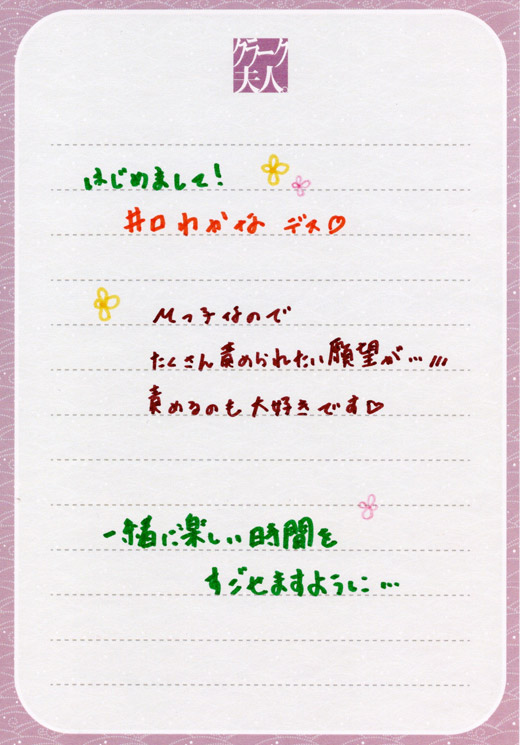 クラーク
夫人。
はじめまして！
井口わかな デス♡
Mっ子なので
たくさん責められたい願望が…///
責めるのも大好きです♡
一緒に楽しい時間を
すごせますように…